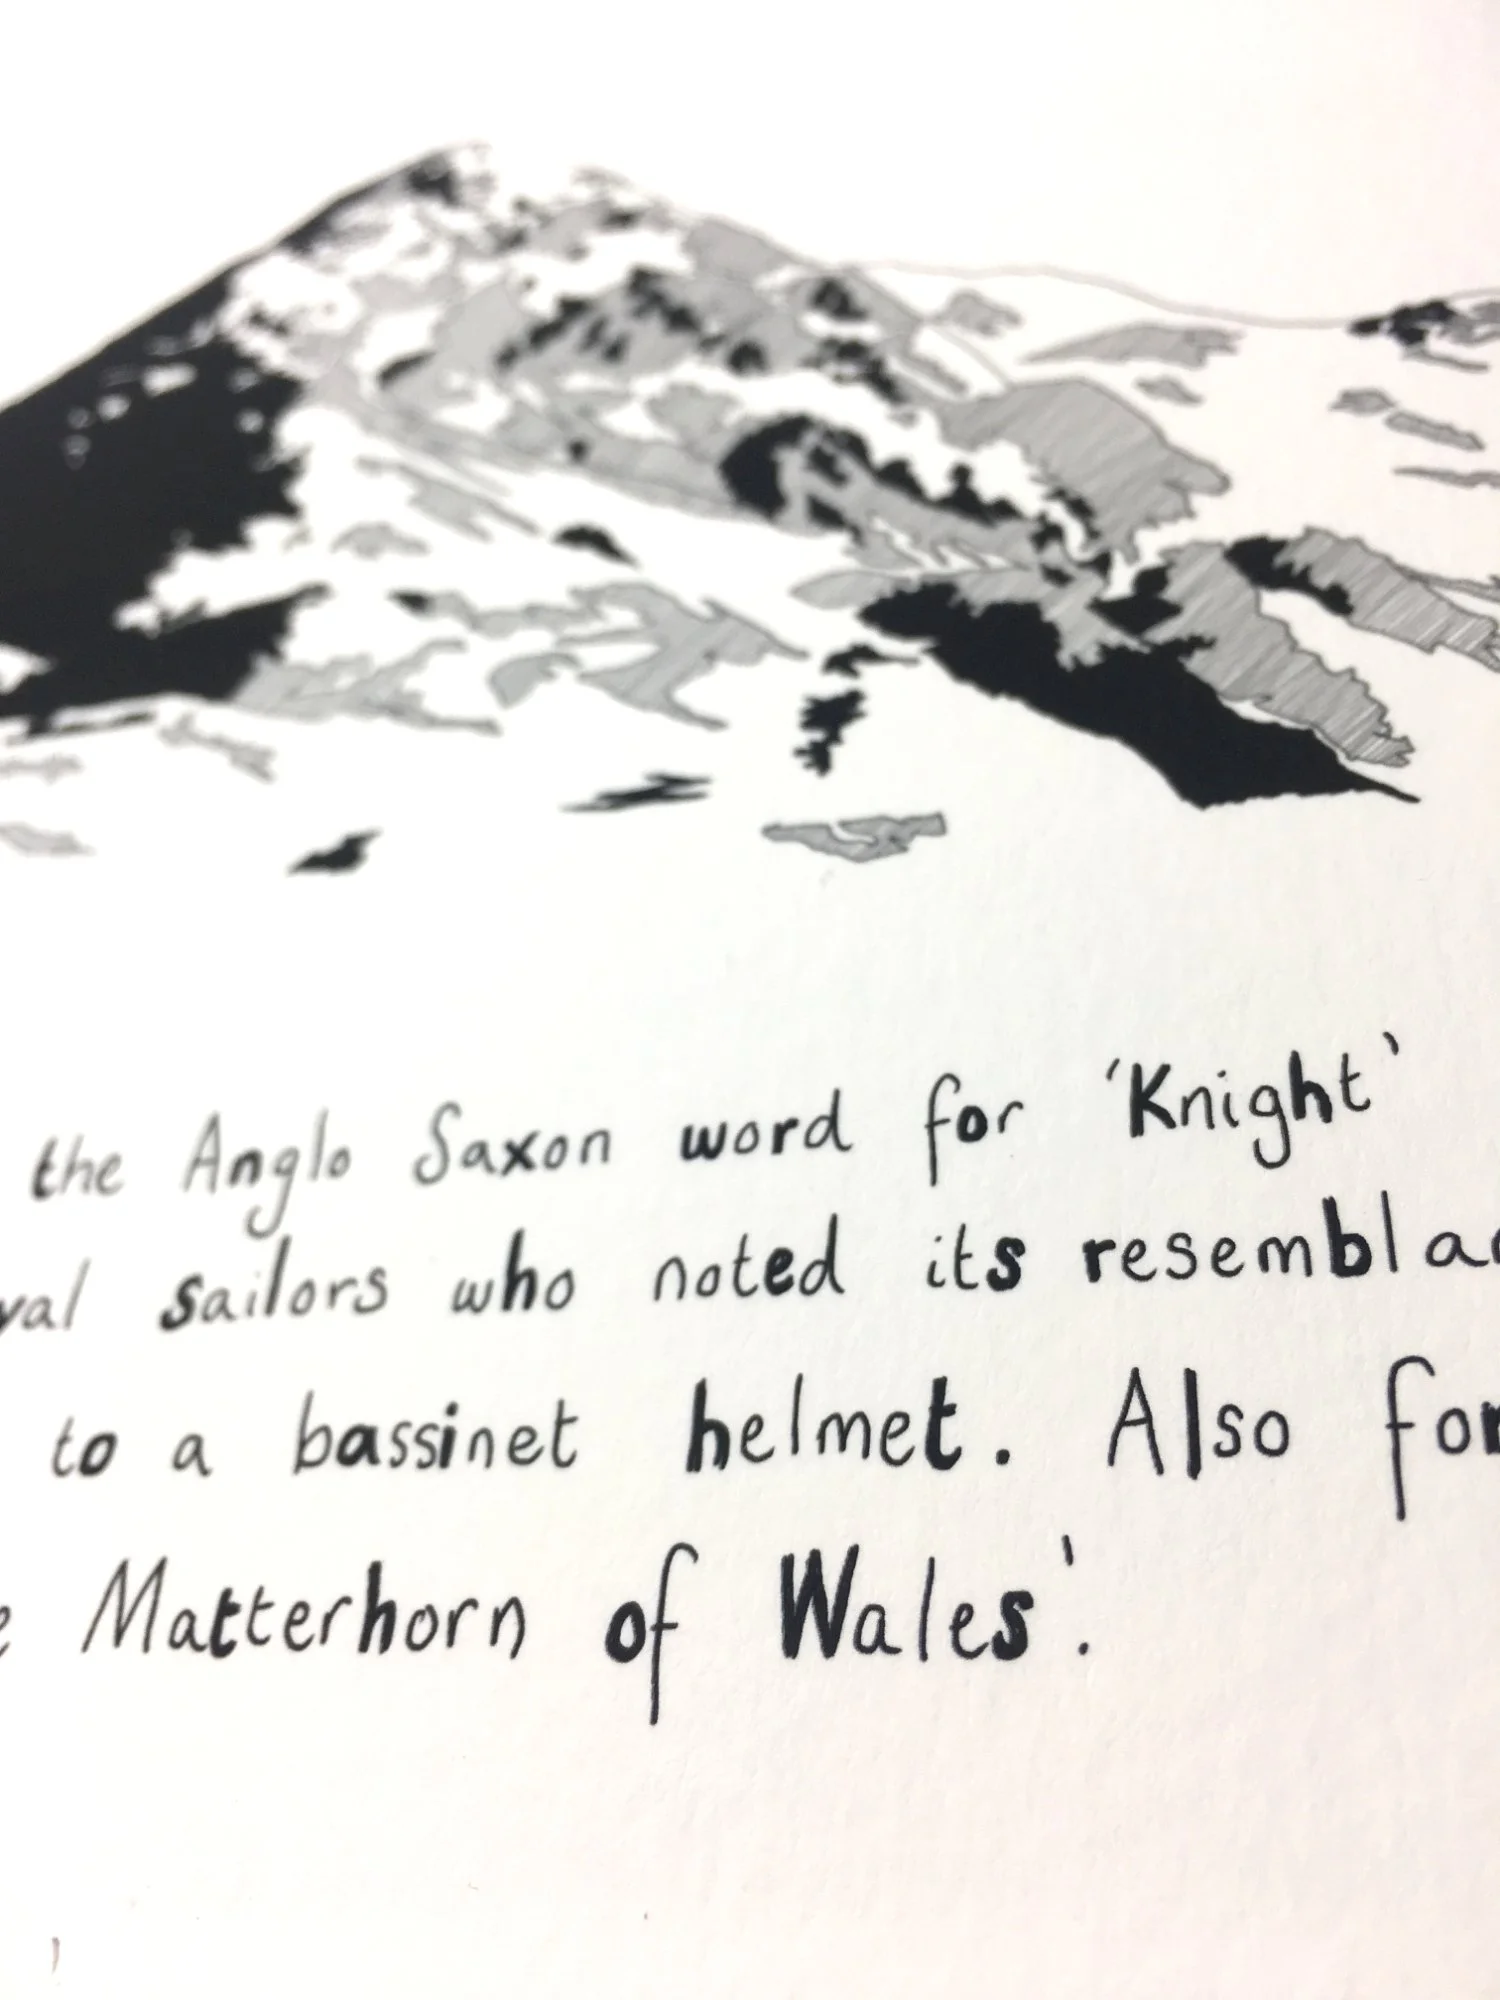 the Anglo Saxon word for 'Knight'
sailors who noted its
to a bassinet helmet. Also
Matterhorn of Wales'.